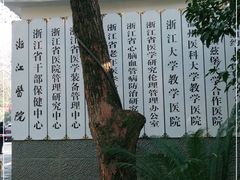 浙江醫院
浙江省干部保健中心
浙江省医院管理研究中心
浙江省医学装备管理中心
浙江省老年医
浙江省心脑血管病防治研究
浙江省医学研究伦理管理办公室
浙江大学教学医院
州医科大学教学医院
兹堡大学合作医院